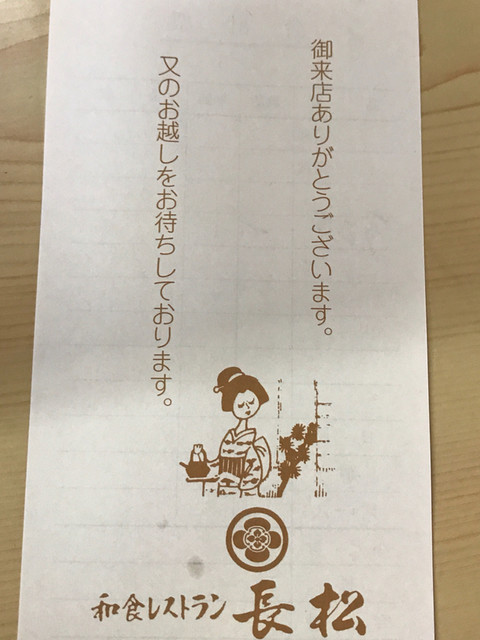 御来店ありがとうございます。
又のお越しをお待ちしております。
和食レストラン 長松